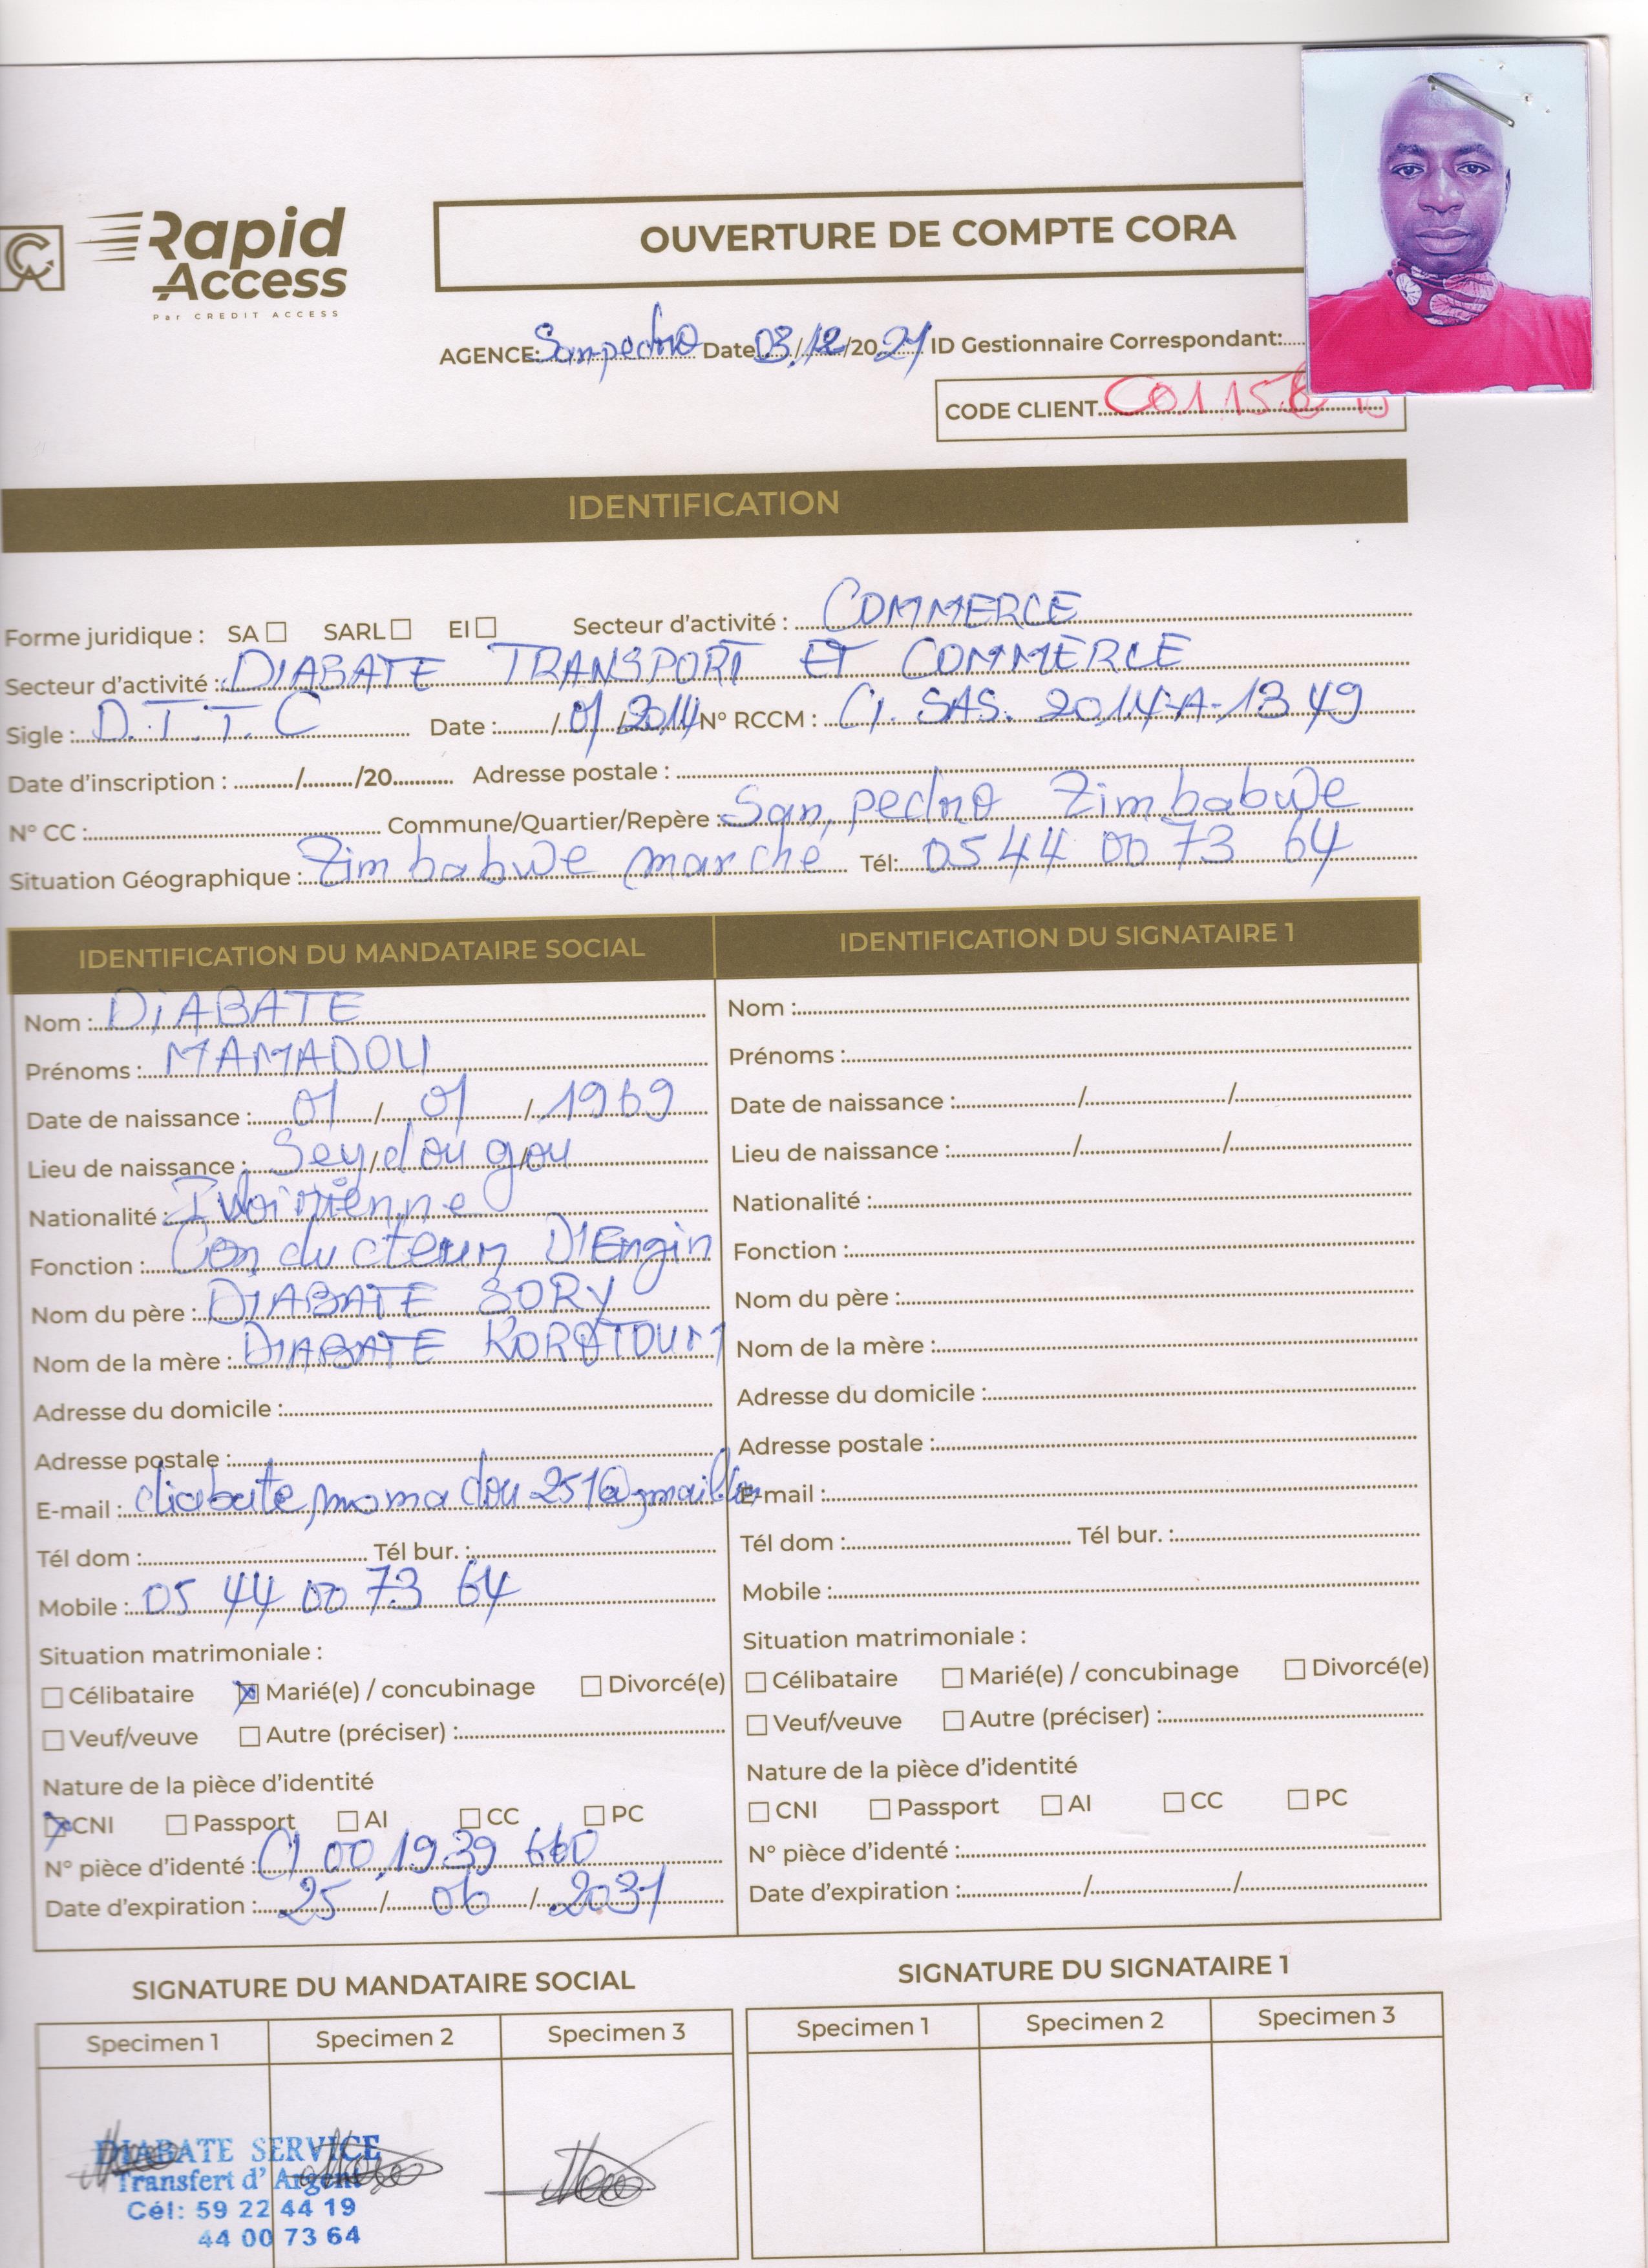 Rapid
Access
Par CREDIT ACCESS
OUVERTURE DE COMPTE CORA
AGENCE: San-pedro Date 03/12/2021 ID Gestionnaire Correspondant:
CODE CLIENT
IDENTIFICATION
Forme juridique : SA SARL EI Secteur d'activité : COMMERCE
Secteur d'activité : DIABATE TRANSPORT ET COMMERCE
Sigle : D.T.T.C Date : / 01 / 2014 N° RCCM : CI. SAS. 2014-A-1349
Date d'inscription : / /20 Adresse postale :
N° CC : Commune/Quartier/Repère : San, pedro Zimbabwe
Situation Géographique : Zimbabwe marché Tél: 05 44 00 73 64
IDENTIFICATION DU MANDATAIRE SOCIAL
Nom : DIABATE
Prénoms : MAMADOU
Date de naissance : 01 / 01 / 1969
Lieu de naissance : Seydougou
Nationalité : Ivoirienne
Fonction : Conducteur D'Engin
Nom du père : DIABATE SORY
Nom de la mère : DIABATE KOROTOUM
Adresse du domicile :
Adresse postale :
E-mail : diabatemamadou251@gmail.
Tél dom : Tél bur. :
Mobile : 05 44 00 73 64
Situation matrimoniale :
Célibataire Marié(e) / concubinage Divorcé(e)
Veuf/veuve Autre (préciser) :
Nature de la pièce d'identité
CNI Passport AI CC PC
N° pièce d'identé : CI 00 1939 660
Date d'expiration : 25 / 06 / 2031
IDENTIFICATION DU SIGNATAIRE 1
Nom :
Prénoms :
Date de naissance : / /
Lieu de naissance : / /
Nationalité :
Fonction :
Nom du père :
Nom de la mère :
Adresse du domicile :
Adresse postale :
E-mail :
Tél dom : Tél bur. :
Mobile :
Situation matrimoniale :
Célibataire Marié(e) / concubinage Divorcé(e)
Veuf/veuve Autre (préciser) :
Nature de la pièce d'identité
CNI Passport AI CC PC
N° pièce d'identé :
Date d'expiration : / /
SIGNATURE DU MANDATAIRE SOCIAL
Specimen 1 Specimen 2 Specimen 3
DIABATE SERVICE
Transfert d'Argent
Cél: 59 22 44 19
44 00 73 64
SIGNATURE DU SIGNATAIRE 1
Specimen 1 Specimen 2 Specimen 3